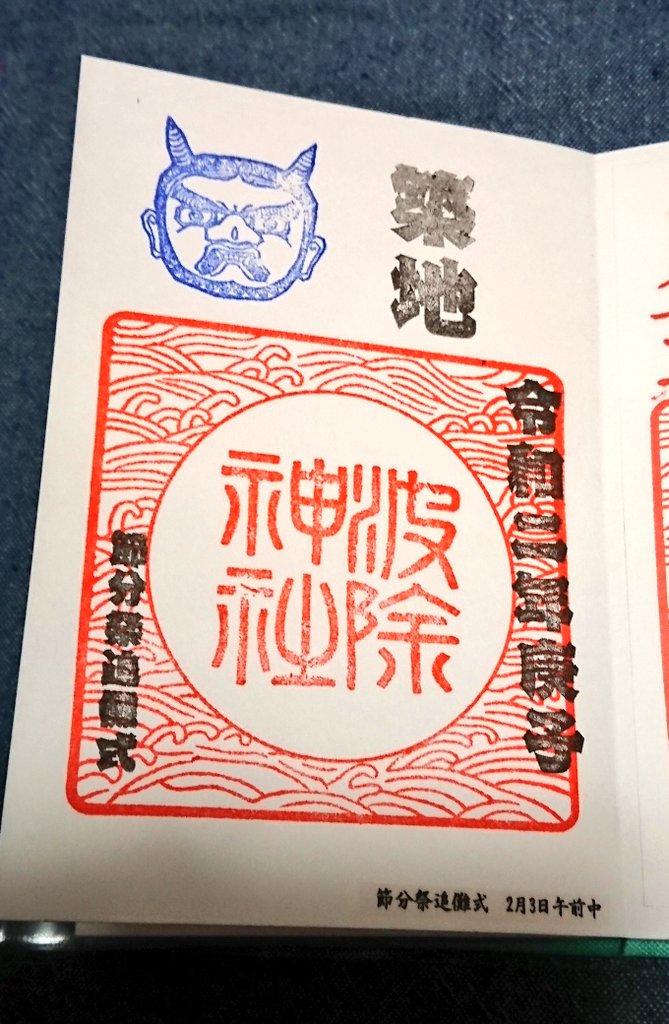 築地
令和二年庚子
波除
神社
節分祭追儺式
節分祭追儺式 2月3日午前中